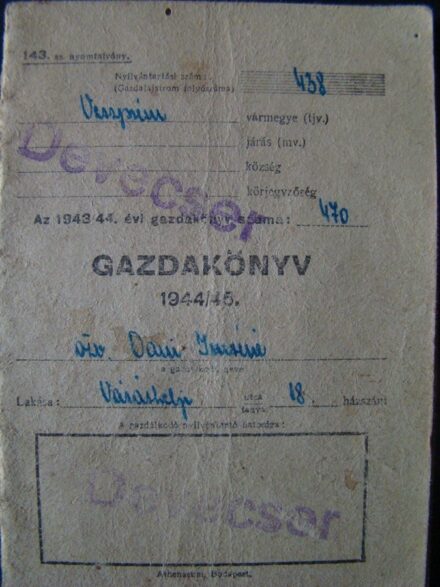 143. sz. nyomtatvány.
Nyilvántartási szám:
(Gazdalajstrom folyószáma) 438
Veszprém vármegye (tjv.)
járás (mv.)
Devecser község
körjegyzőség
Az 1943/44. évi gazdakönyv száma: 470
GAZDAKÖNYV
1944/45.
özv. Dani Imréné
a gazdálkodó neve
Lakása: Vásárhely utca 18. házszám
tanya
A gazdálkodó nyilvántartó hatósága:
Devecser
Athenaeum, Budapest.